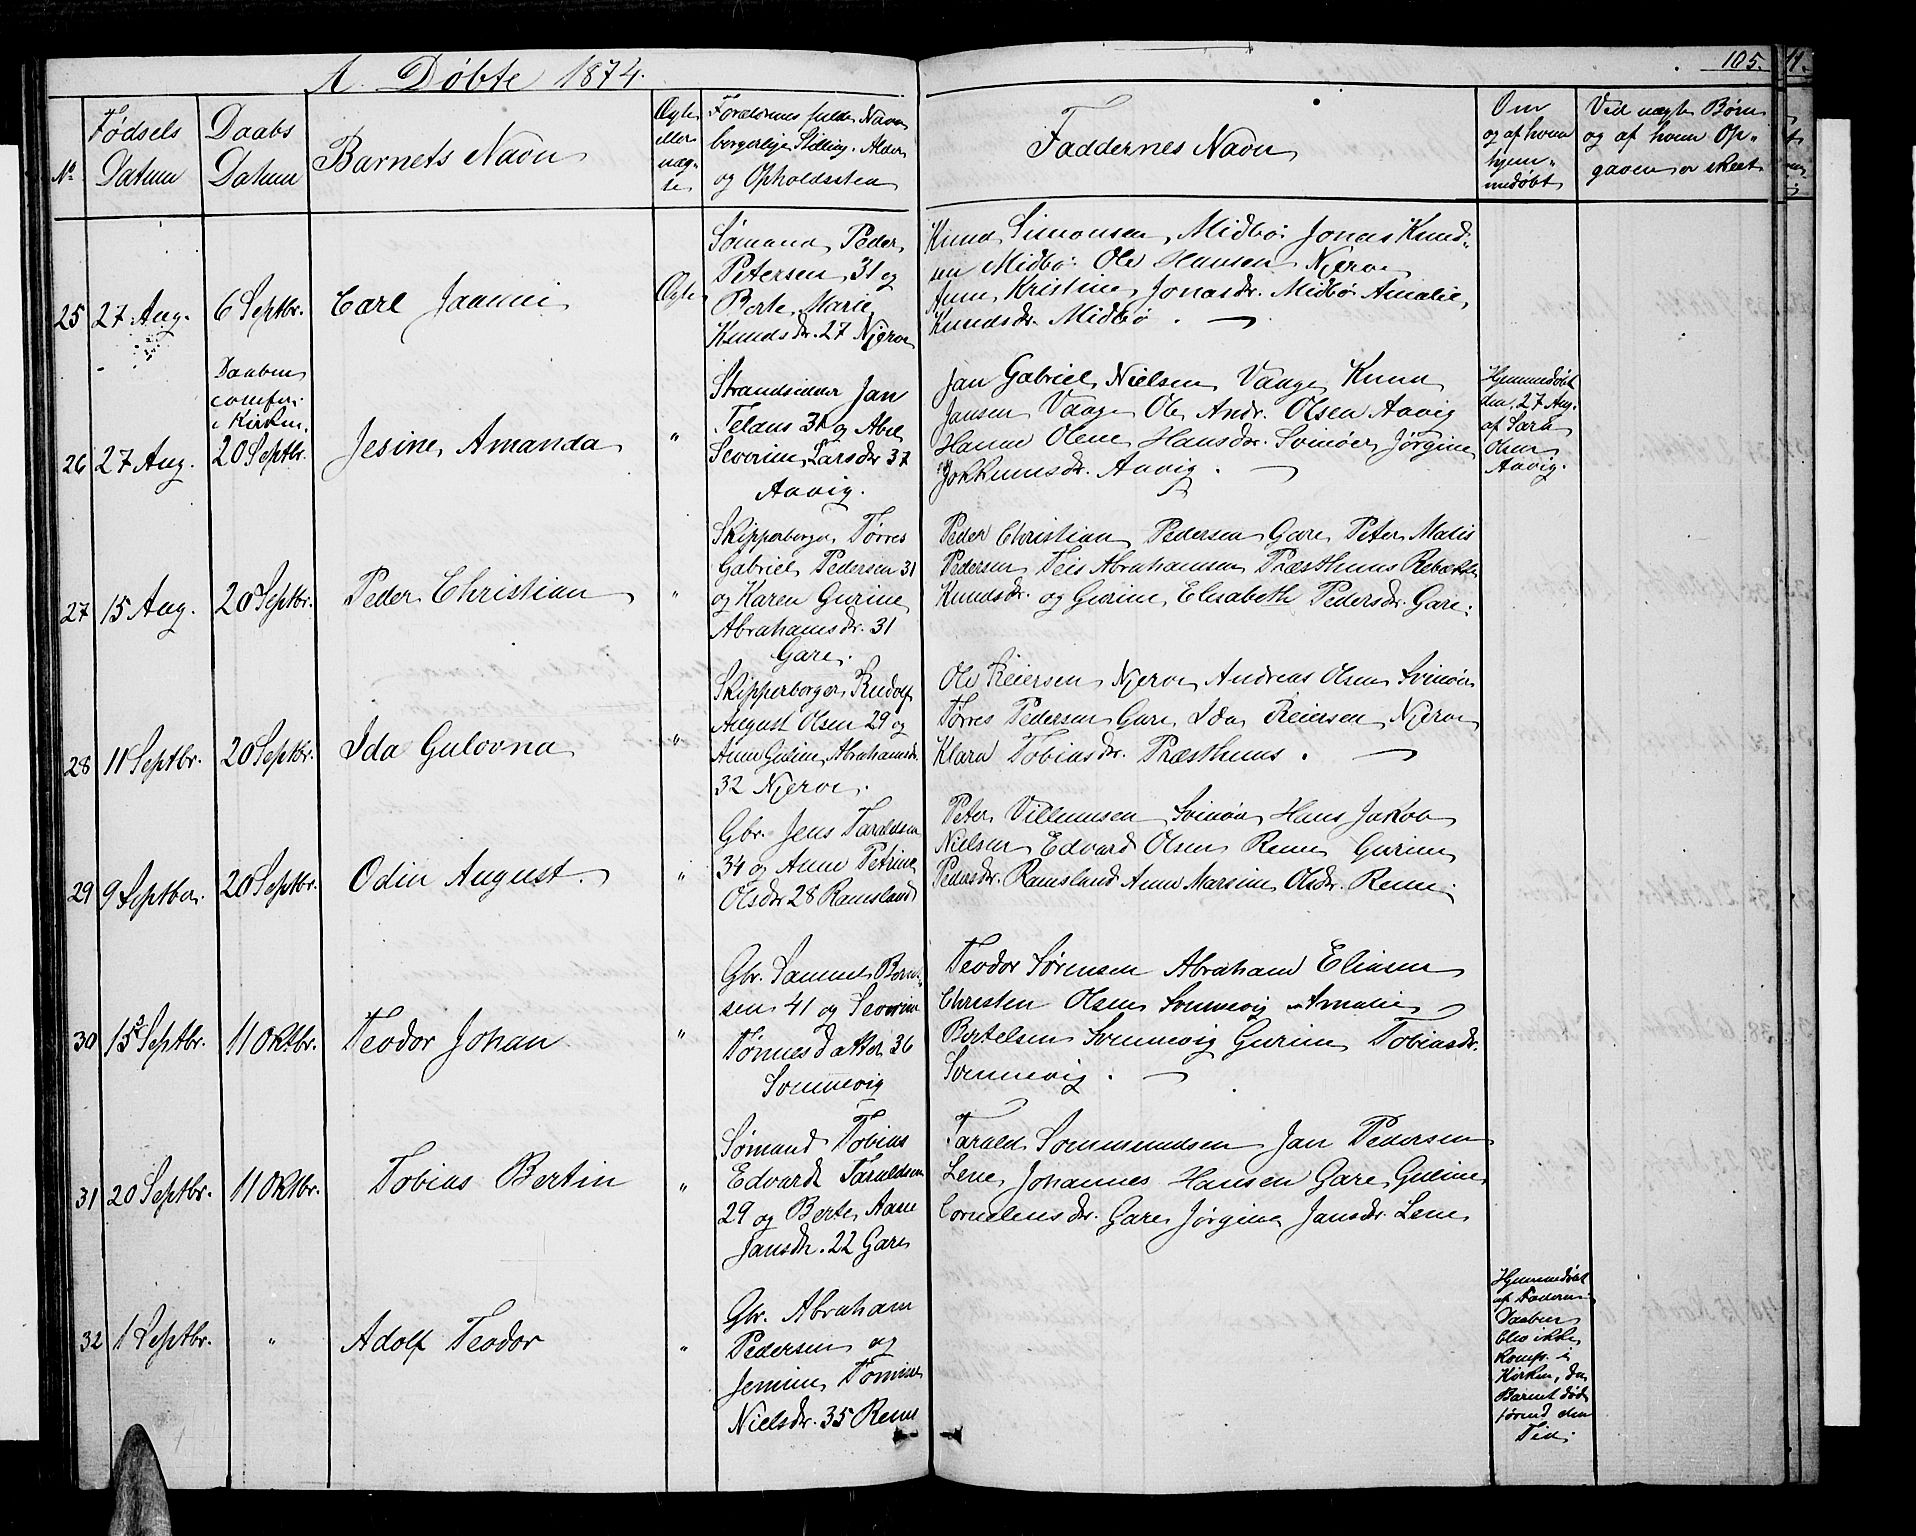 A. Døbte 1874.
105.
No
Fødsels Datum
Daabs Datum
Barnets Navn
Ægte eller uæg-te
Forældrenes fulde Navn borgerlige Stilling, Alder og Opholdssted
Faddernes Navn
Om og af hvem hjem-medøbt
Ved uægte Børn og af hvem Op-gaven er skeet
25 27 Aug. 6 Septbr. Carl Ægte
Sømand Peder
Petersen 31 og
Berte Marie
Knudsdr. 27 Njerve
Knud Simonsen Midbø Jonas Knud-
sen Midbø Ole Hansen Njerve
Anne Kristine Jonasdr. Midbø Amalie
Knudsdr. Midbø. —
26 27 Aug.
Daaben
comfr.
i Kirken
20 Septbr.
Jesine Amanda "
Strandsidder Jan
Teldus 31 og Abel
Severine Larsdr 37
Aavig.
Jan Gabriel Nielsen Vaage Knud
Jansen Vaage Ole Andr. Olsen Aavig
Hanne Olene Hansdr. Svinøer Jørgine
Jokkumsdr. Aavig. —
Hjemmedøbt
den 27 Aug.
af Sara
Olsen
Aavig.
27 15 Aug. 20 Septbr. Peder Christian "
Skipperborger Tørres
Gabriel Pedersen 31
og Karen Gurine
Abrahamsdr. 31
Gare.
Peder Christian Pedersen Gare Peter Matis
Pedersen Teis Abrahamsen Præsthuus Rebekke
Knudsdr. og Gurine Elisabeth Pedersdr. Gare.
28 11 Septbr. 20 Septbr. Ida Gulovna "
Skipperborger Rudolf
August Olsen 29 og
Anne Guline Abrahamsdr.
32 Njerve.
Ole Reiersen Njerve Andreas Olsen Svinøer
Tørres Pedersen Gare Ida Reiersen Njerve
Klara Tobiasdr. Præsthuus. —
29 9 Septber. 20 Septbr. Odin August. "
Gbr. Jens Taraldsen
34 og Anne Petrine
Olsdr 28 Ramsland
Peter Villumsen Svinøer Hans Jakob
Nielsen Edvard Olsen Renne Gurine
Pedersdr. Ramsland Anne Marsine Olsdr. Renne.
30 Septbr. 11 Oktbr. Teodor Johan "
Gbr. Samuel Bernt-
sen 41 og Severine
Tønnes Datter 36
Svennevig
Teodor Sørensen Abraham Eliasen
Christen Olsen Svennevig Amalie
Bertelsen Svennevig Gurine Tobiasdr.
Svennevig. —
31 20 Septbr. 11 Oktbr. Tobias Bertin "
Sømand Tobias
Edvard Taraldsen
29 og Berte Aane
Jansdr. 22 Gare
Tarald Jan Pedersen
Lene Johannes Hansen Gare Guline
Corneliusdr. Gare Jørgine Jansdr. Lene
32 1 Septbr. " Adolf Teodor "
Gbr. Abraham
Pedersen og
Jemine Tomine
Nielsdr. 35 Renne
Hjemmedøbt
af Faderen
Daaben
blev ikke
komf. i
Kirken, da
Barnet døde
forend den
Tid.